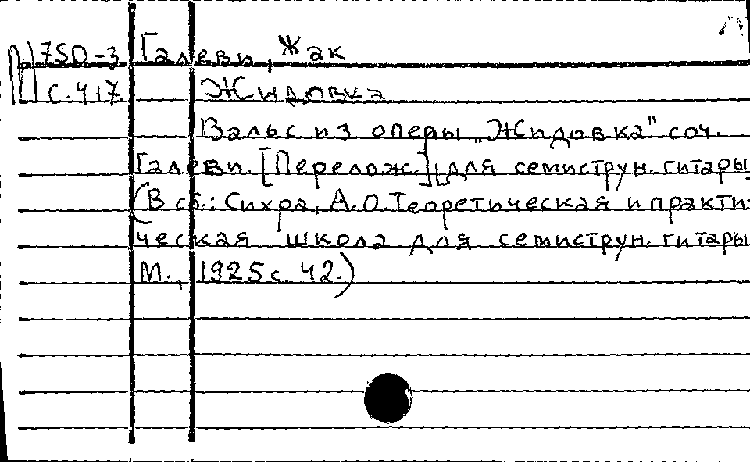 П 750-3 Галеви, Жак
с. 417 Жидовка
Вальс из оперы „Жидовка" соч.
Галеви. [Перелож.] для семиструн. гитары
(В сб.: Сихра, А.О. Теоретическая и практи-
ческая школа для семиструн. гитары
М., 1925 с. 42.)